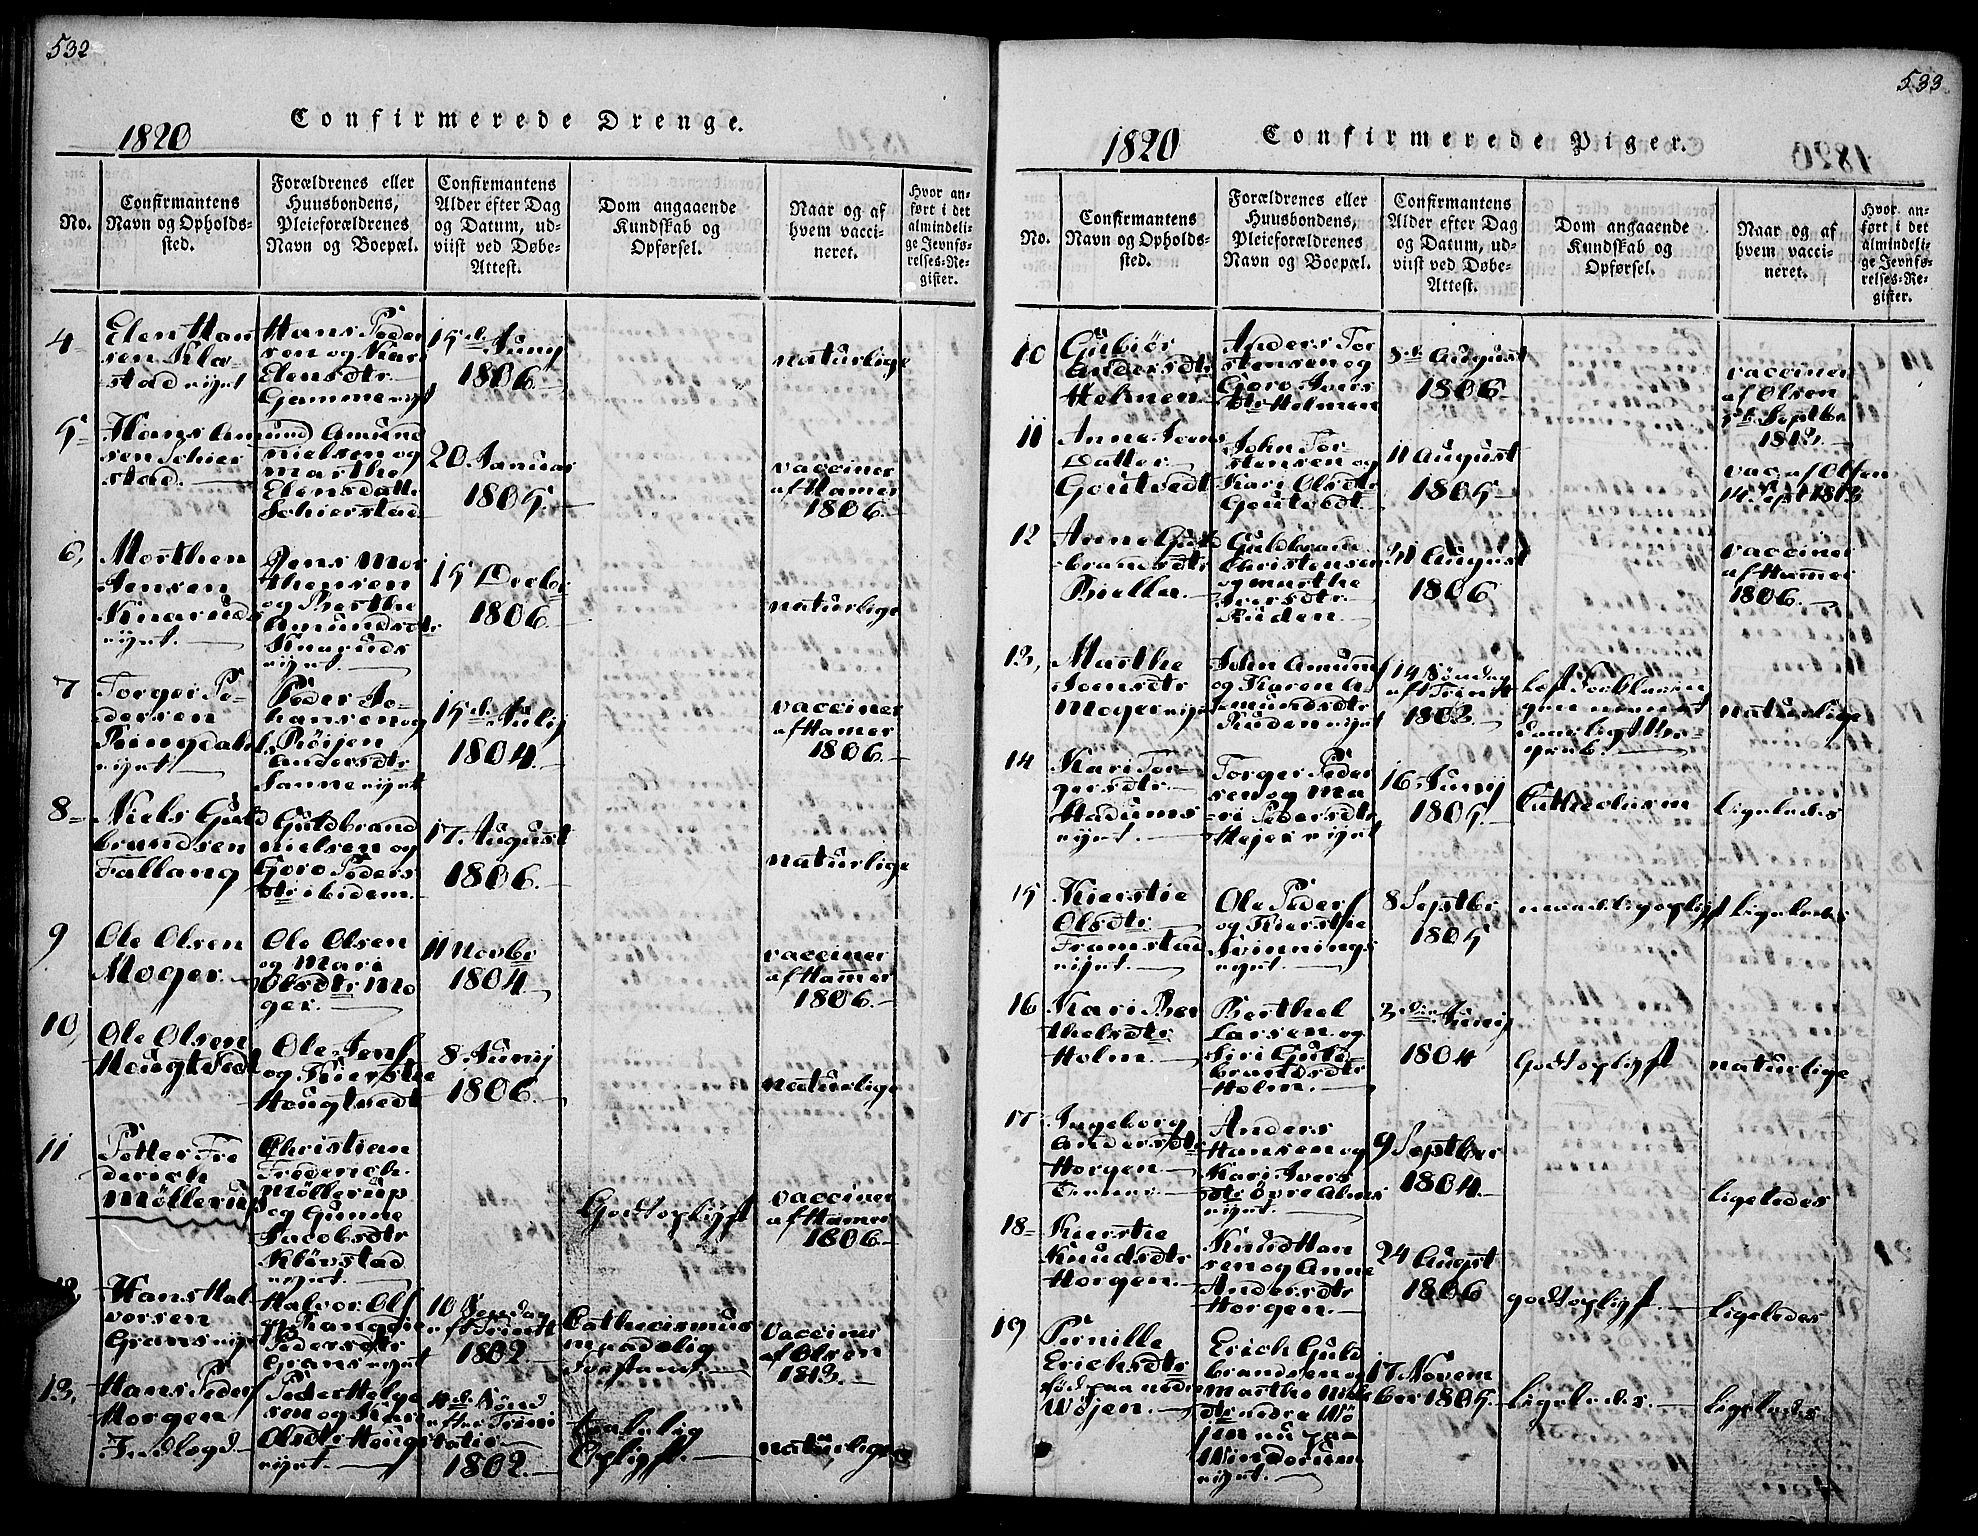 532
Confirmerede Drenge.
1820
No.
Confirmantens
Navn og Opholds-
sted.
Forældrenes eller
Huusbondens,
Pleieforældrenes
Navn og Boepæl.
Confirmantens
Alder efter Dag
og Datum, ud-
viist ved Døbe-
Attest.
Dom angaaende
Kundskab og
Opførsel.
Naar og af
hvem vacci-
neret.
Hvor an-
ført i det
almindeli-
ge Jevnfø-
relses-Re-
gister.
4
Elen Han
sen Kla-
stad
Hans Peder
sen og Kari
Elensdtr
Gamme
15 d. Juny
1806
naturlige
5
Hans Amund
sen Schier
stad
Amund
nielsen og
marthe
Elensdatt
Schierstad
20 Januar
1805
vacciner
af Hamer
1806
6,
Morthen
Jensen
Knaruds
Jens Mor
thensen
og Berthe
Amundsdtr
Knaruds
15 Decbr
1806
naturlige
7
Torger Pe-
dersen
Ringdahl
Peder Jo-
hansen og
Røijen
Andersdtr
Sanne
15 d. Julij
1804
vacciner
af Hamer
1806
8
Niels Guld
brandsen
Fallang
Guldbrand
nielsen og
Goro Peders
dtr ibidem
17 August
1806
naturlige
9
Ole Olsen
Moger
Ole Olsen
og Mari
Olsdtr Mo
ger
11 Novbr
1804
vacciner
af Hammer
1806
10,
Ole Olsen
Hougtvedt
Ole Jens
og Kierstie
Hougtvedt
8 Junij
1806
naturlige
11
Petter Fre
derich
Møllerup
Christian
Frederich
Møllerup
og Gunne
Jacobsdtr
Kløvstad
Godt og lijst
vacciner
af Hamer
1806
12,
Hans Hal
vorsen
Grans
Halvor Ols
og Rangdie
Pedersdtr
Grans
10 Søndag
eft Trinit
1802
Cathecismus
maadelig
Forstand
vacciner
af Olsen
1813
13,
Hans Peders
Horgen
Indlagd
Peder Helge
sen og Kari
Olsdtr Houg
11 d. Sønd
efter Trini
tatis
1802
Taalelig
Oglijst
naturlige

533
Confirmerede Piger.
1820
No.
Confirmantens
Navn og Opholds-
sted.
Forældrenes eller
Huusbondens,
Pleieforældrenes
Navn og Boepæl.
Confirmantens
Alder efter Dag
og Datum, ud-
viist ved Døbe-
Attest.
Dom angaaende
Kundskab og
Opførsel.
Naar og af
hvem vacci-
neret.
Hvor an-
ført i det
almindeli-
ge Jevnfø-
relses-Re-
gister.
10
Gubiør
Andersdtr
Helmen
Anders Tor
stensen og
Goro Ivers
dtr Helmen
8 d. August
1806
vacciner
af Olsen
5 d. Septbr
1813
11
Anne Jons
Datter
Goutvedt
John Tor-
stensen og
Kari Olsdtr
Goutvedt
11 August
1805
vac af Olsen
14 Sept 1813
12
Anne Guld
brandsdtr
Biella
Guldbrand
Christensen
og marthe
Iversdtr
Ruden
31 August
1806
vacciner
af Hammer
1806
13,
Marthe
Joensdtr
Moger
John Amund
og Karen A
mundsdtr
Ruden
14 Søndag
eft Trinit
1802
naturlige
14
Kari Tor-
gersdtr
Hadums
Torger Peder
sen og Ma
ri Pedersdtr
Højer
16 Junij
1805
Ligeledes
15
Kierstie
Olsdtr
Framstad
Ole Peders
og Kierstie
Svinnings
8 Septbr
1805
maadelig og lijst
Ligeledes
16
Kari Ber
thelsdtr
Holm
Berthel
Larsen og
Siri Gulb
brandsdtr
Holm
3 die Junij
1804
Godt og lijst
naturlige
17
Ingeborg
Andersdtr
Horgen
Anders
Hansen og
Kari Ivers
dtr øvre Alm
9 Septber
1804
ligeledes
18
Kierstie
Knudsdtr
Horgen
Knud Han
sen og Anne
Andersdtr
Horgen
24 Augst
1806
godt og lijst
Ligeledes
19
Pernille
Erichsdtr
fød paa nedre
Wøjen
Erich Guld
brandsen og
marthe
dtr nedre Wø
jen nu paa
Windorum
17 Novem
ber 1805
Ligeledes
Ligeledes